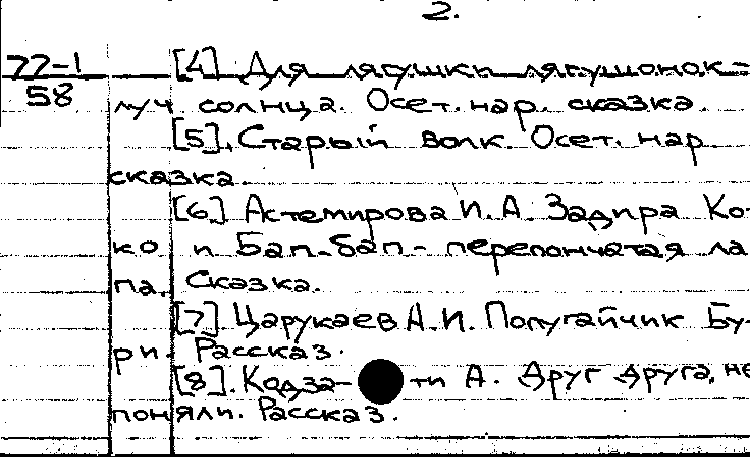 2.
77-1 [4] Для лягушки лягушонок-
58 луч солнца. Осет. нар. сказка.
[5]. Старый волк. Осет. нар
сказка.
[6] Астемирова И. А. Задира Ко-
ко и Бап-бап - перепончатая ла
па. Сказка.
[7] Царукаев А.И. Попугайчик Бу-
ри. Рассказ.
[8]. Кодза-ти А. Друг друга, не
поняли. Рассказ.